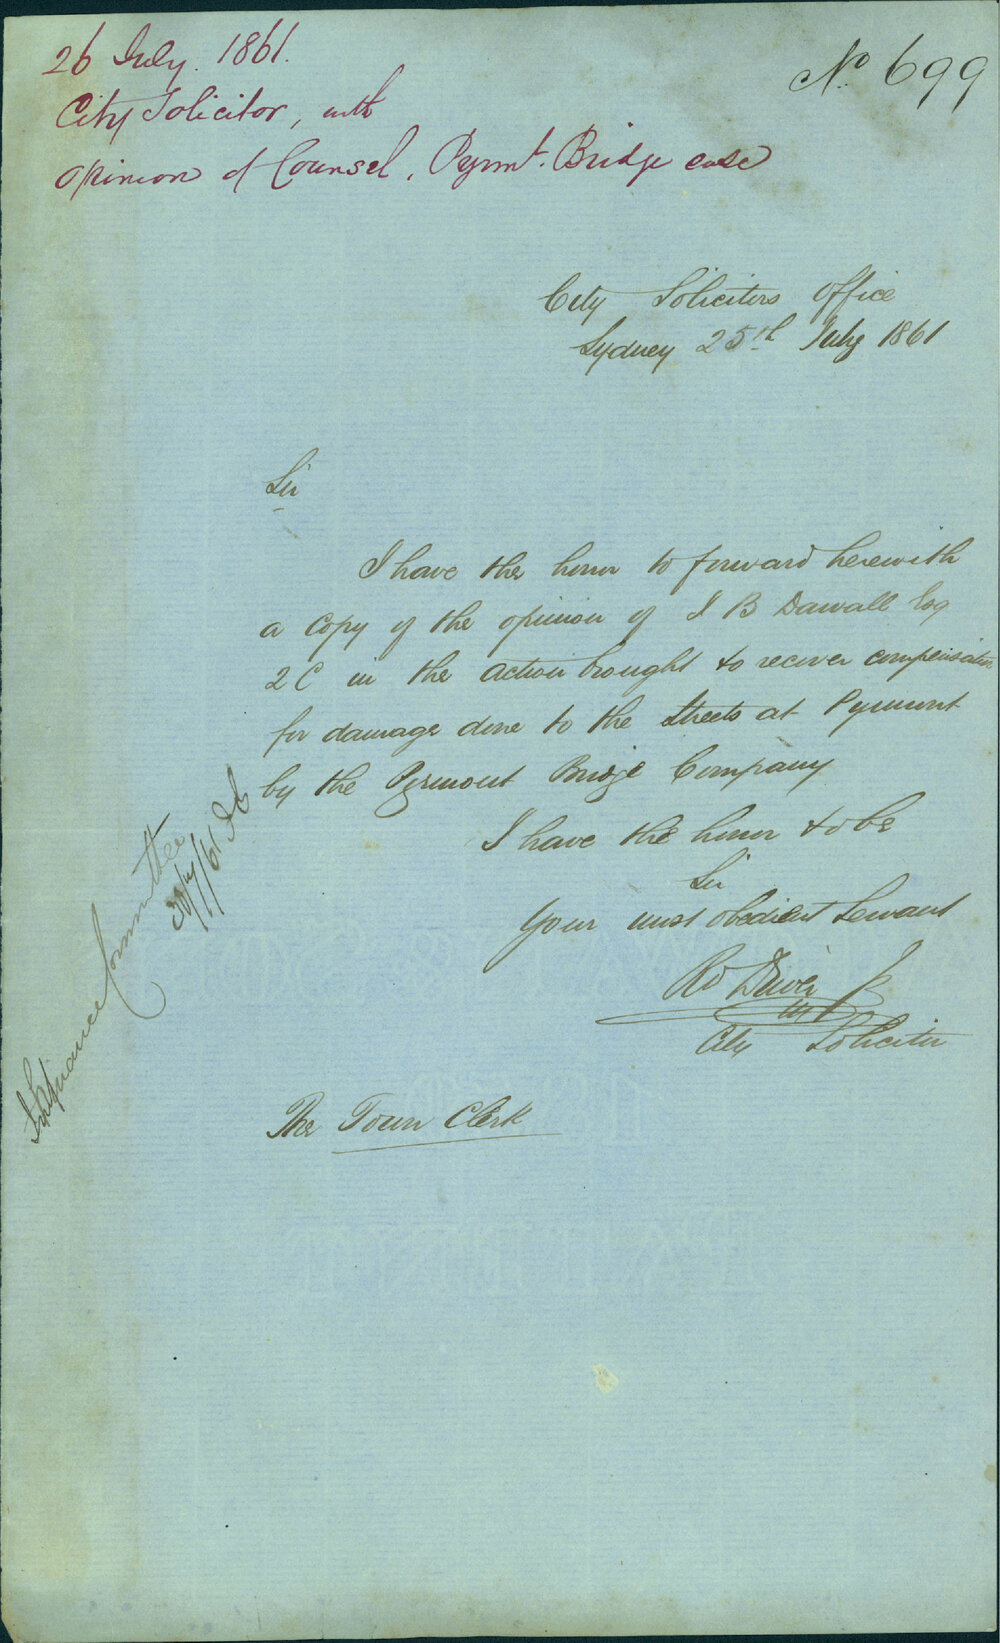 26 July. 1861.
City Solicitor, with
opinion of Counsel, Pyrmt. Bridge case
No. 699
City Solicitors Office
Sydney 25th July 1861
Sir
I have the honor to forward herewith
a copy of the opinion of J B Darvall Esq
QC in the action brought to recover compensation
for damage done to the Streets at Pyrmont
by the Pyrmont Bridge Company
I have the honor to be
Sir
Your most obedient Servant
Rd Driver Jr
City Solicitor
The Town Clerk
Finance Committee